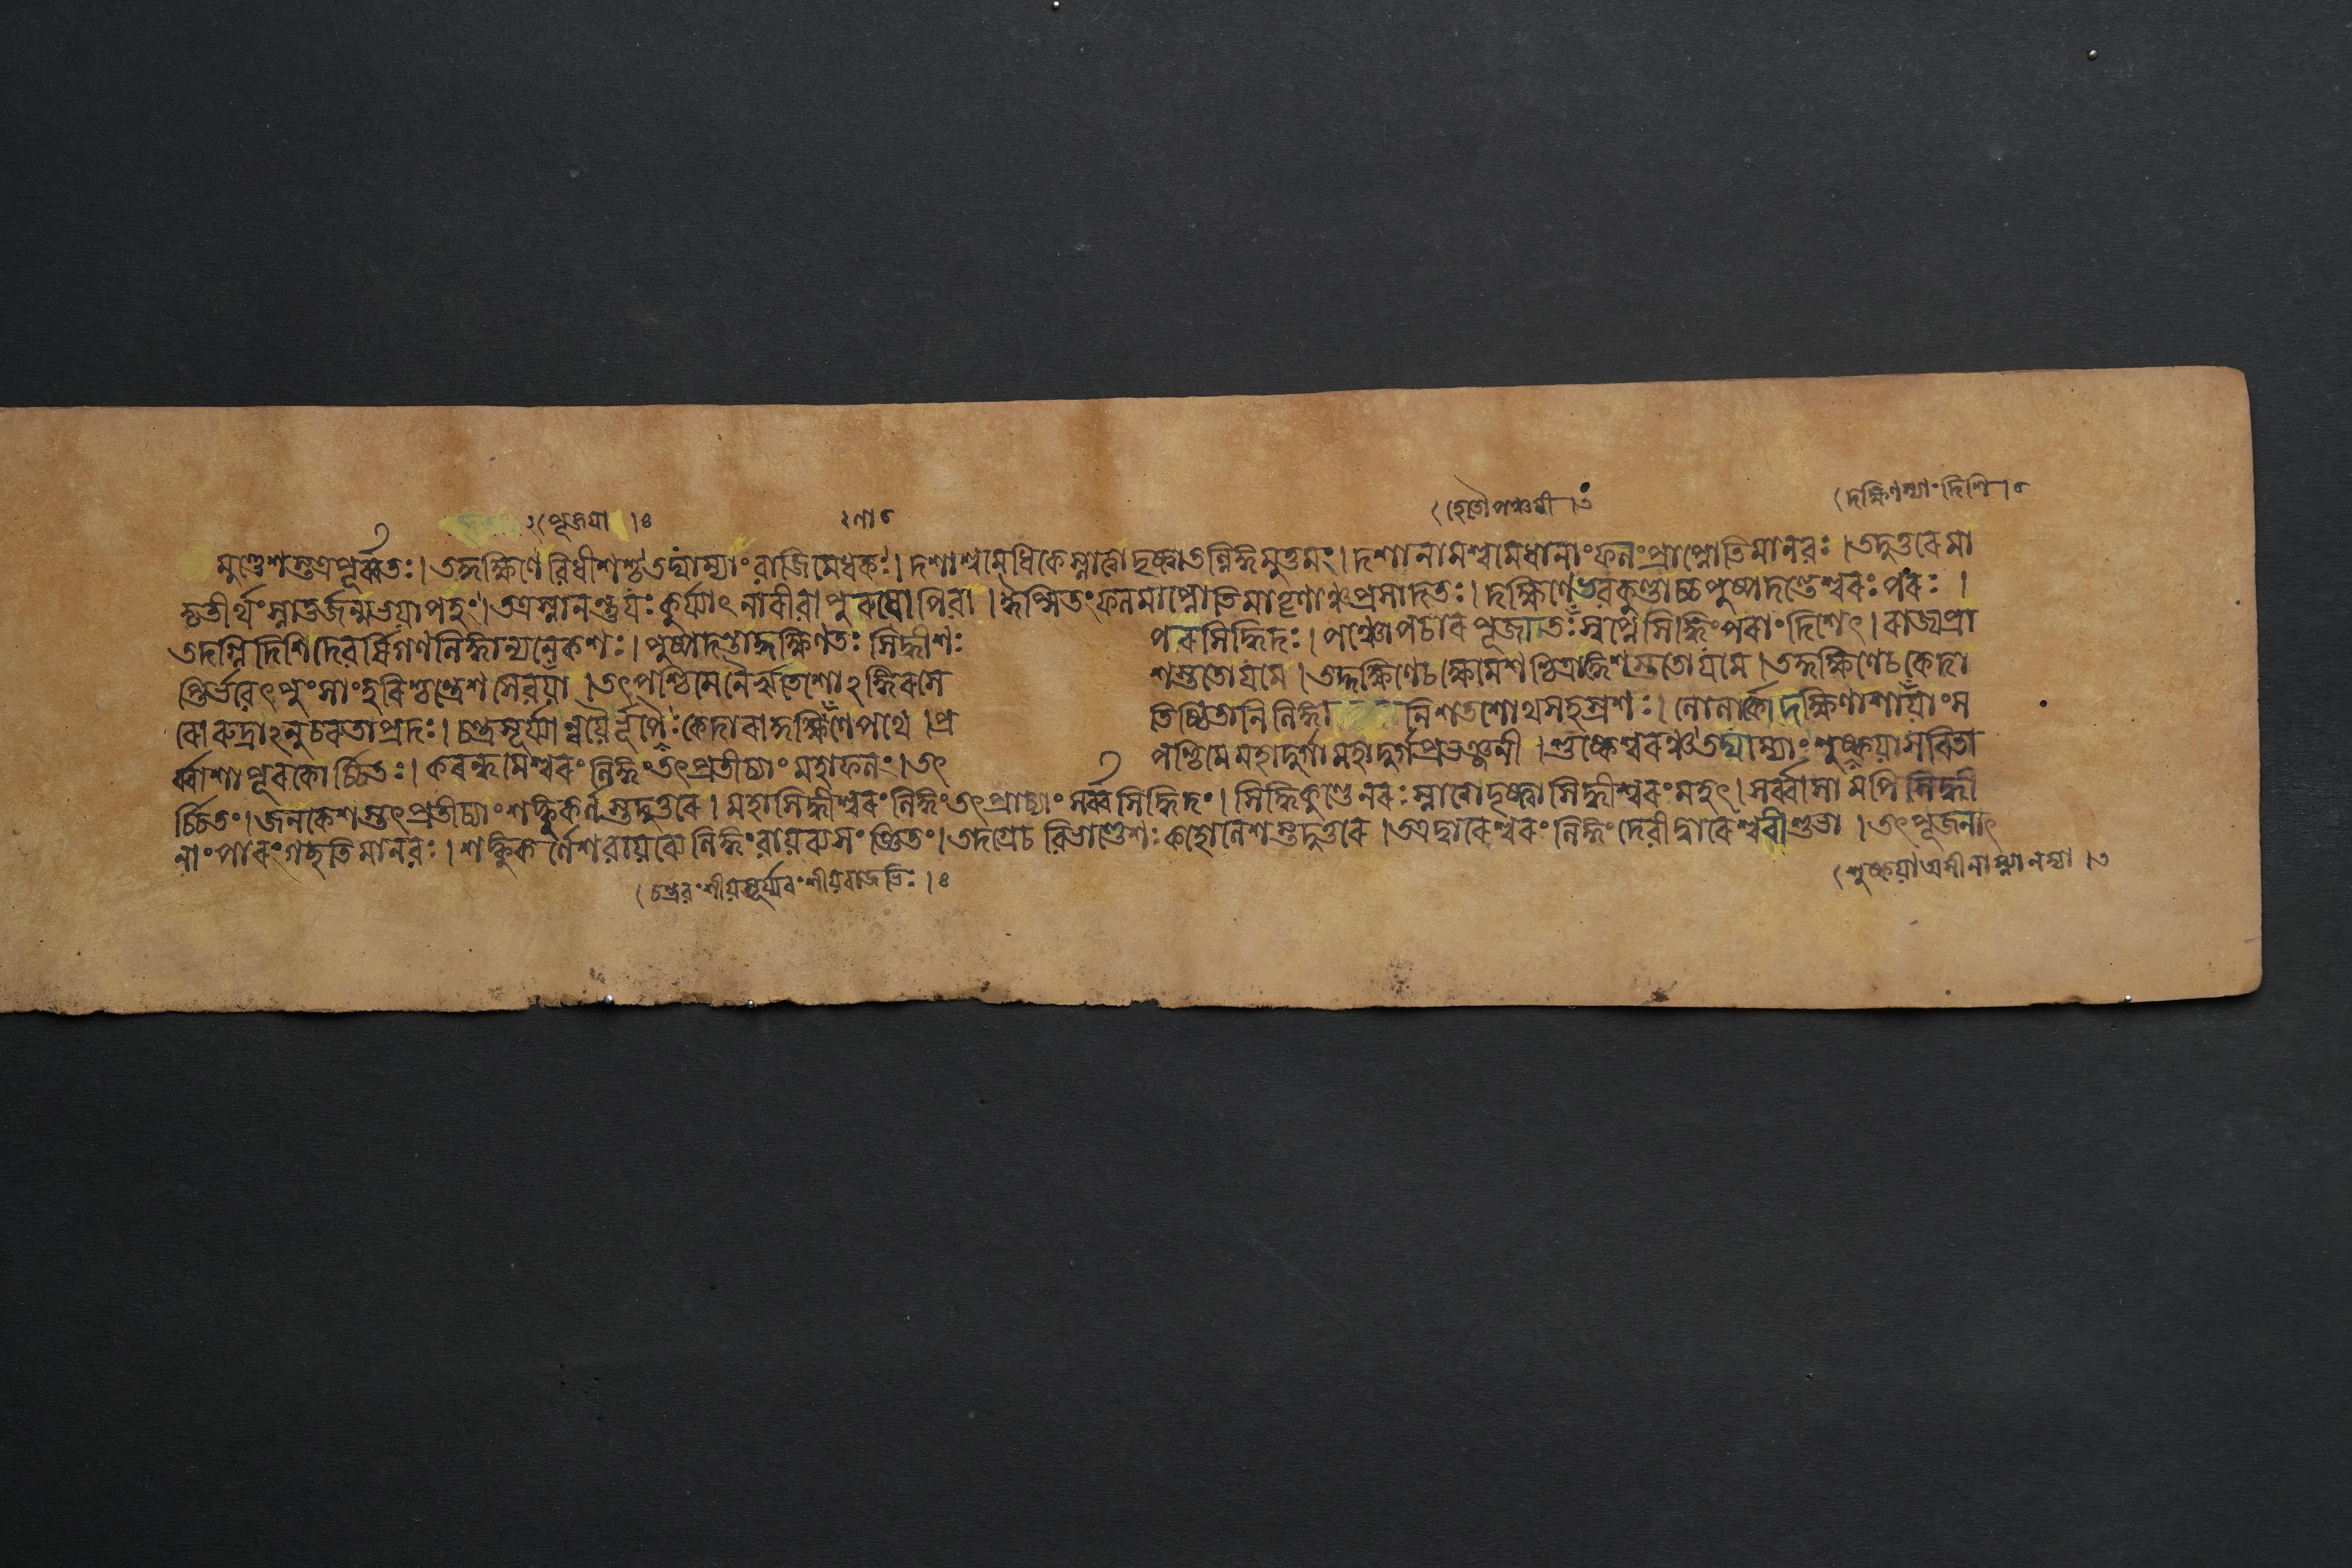 পূজয়া ।৪
ণা৫
হেতৌপঞ্চমী ।১
দক্ষিণস্যাংদিশি।৫
মুণ্ডেশস্তত্রপূর্ব্বতঃ। তদ্দক্ষিণে বিধীশশ্চতদ্যাম্যাং বাজিমেধকঃ। দশাশ্বমেধিকেস্নাত্বাদৃষ্ট্বাতল্লিঙ্গমুত্তমং। দশানামশ্বমেধানাংফলংপ্রাপ্নোতিমানবঃ। তদুত্তরেমা
তৃতীর্থংস্নাতুর্জন্মভয়াপহং। তত্রস্নানন্তুযঃকুর্য্যাৎ নারীবাপুরুষোপিবা। ঈপ্সিতংফলমাপ্নোতিমাতৄণাঞ্চপ্রসাদতঃ। দক্ষিণেতবকুণ্ডাচ্চপুষ্পদন্তেশ্বরঃপরঃ।
তদগ্নিদিশিদেবর্ষিগণলিঙ্গান্যনেকশঃ। পুষ্পদন্তাদ্দক্ষিণতঃসিদ্ধীশঃ পরসিদ্ধিদঃ। পঞ্চোপচারপূজাতঃস্বপ্নেসিদ্ধিংপরাংদিশেৎ। রাজ্যপ্রা
প্তির্ভবেৎপুংসাংহরিশ্চন্দ্রেশসেবয়া। তৎপশ্চিমেনৈরৃতেশোঽঙ্গিরসে শস্ততোযমে। তদ্দক্ষিণেচক্ষেমেশশ্চিত্রাঙ্গেশস্ততোযমে। তদ্দক্ষিণেচকেদা
রোরুদ্রাঽনুচরতাপ্রদঃ। চন্দ্রসূর্য্যান্বয়ৈর্নৃপৈঃকেদারাদ্দক্ষিণেপথে। প্র তিষ্ঠিতানিলিঙ্গা নিশতশোথসহস্রশঃ। লোলার্কাদ্দক্ষিণাশায়াংস
র্ব্বাশাপূরকোর্চ্চিতঃ। করন্ধমেশ্বরংলিঙ্গংতৎপ্রতীচ্যাংমহাফলং। তৎ পশ্চিমেমহাদুর্গামহাদুর্গপ্রভঞ্জনী। শুষ্কেশ্বরঞ্চতদ্যাম্যাংশুষ্কয়াসরিতা
র্চ্চিতং। জনকেশস্তৎপ্রতীচ্যাংশঙ্কুকর্ণস্তদুত্তরে। মহাসিদ্ধীশ্বরংলিঙ্গংতৎপ্রাচ্যাংসর্ব্বসিদ্ধিদং। সিদ্ধিকুণ্ডেনরঃস্নাত্বাদৃষ্ট্বাসিদ্ধীশ্বরংমহৎ। সর্ব্বাসামপিসিদ্ধী
নাংপারংগচ্ছতিমানবঃ। শঙ্কুকর্ণেশবায়ব্যেলিঙ্গং তদগ্রেচবিভাণ্ডেশঃকহোলেশস্তদুত্তরে। তত্রদ্বারেশ্বরংলিঙ্গংদেবীদ্বারেশ্বরীশুভা। তৎপূজনাৎ
চন্দ্রবংশীয়সূর্য্যবংশীয়রাজভিঃ।৪
শুষ্কয়াঅসীনাম্নানদ্যা।৬